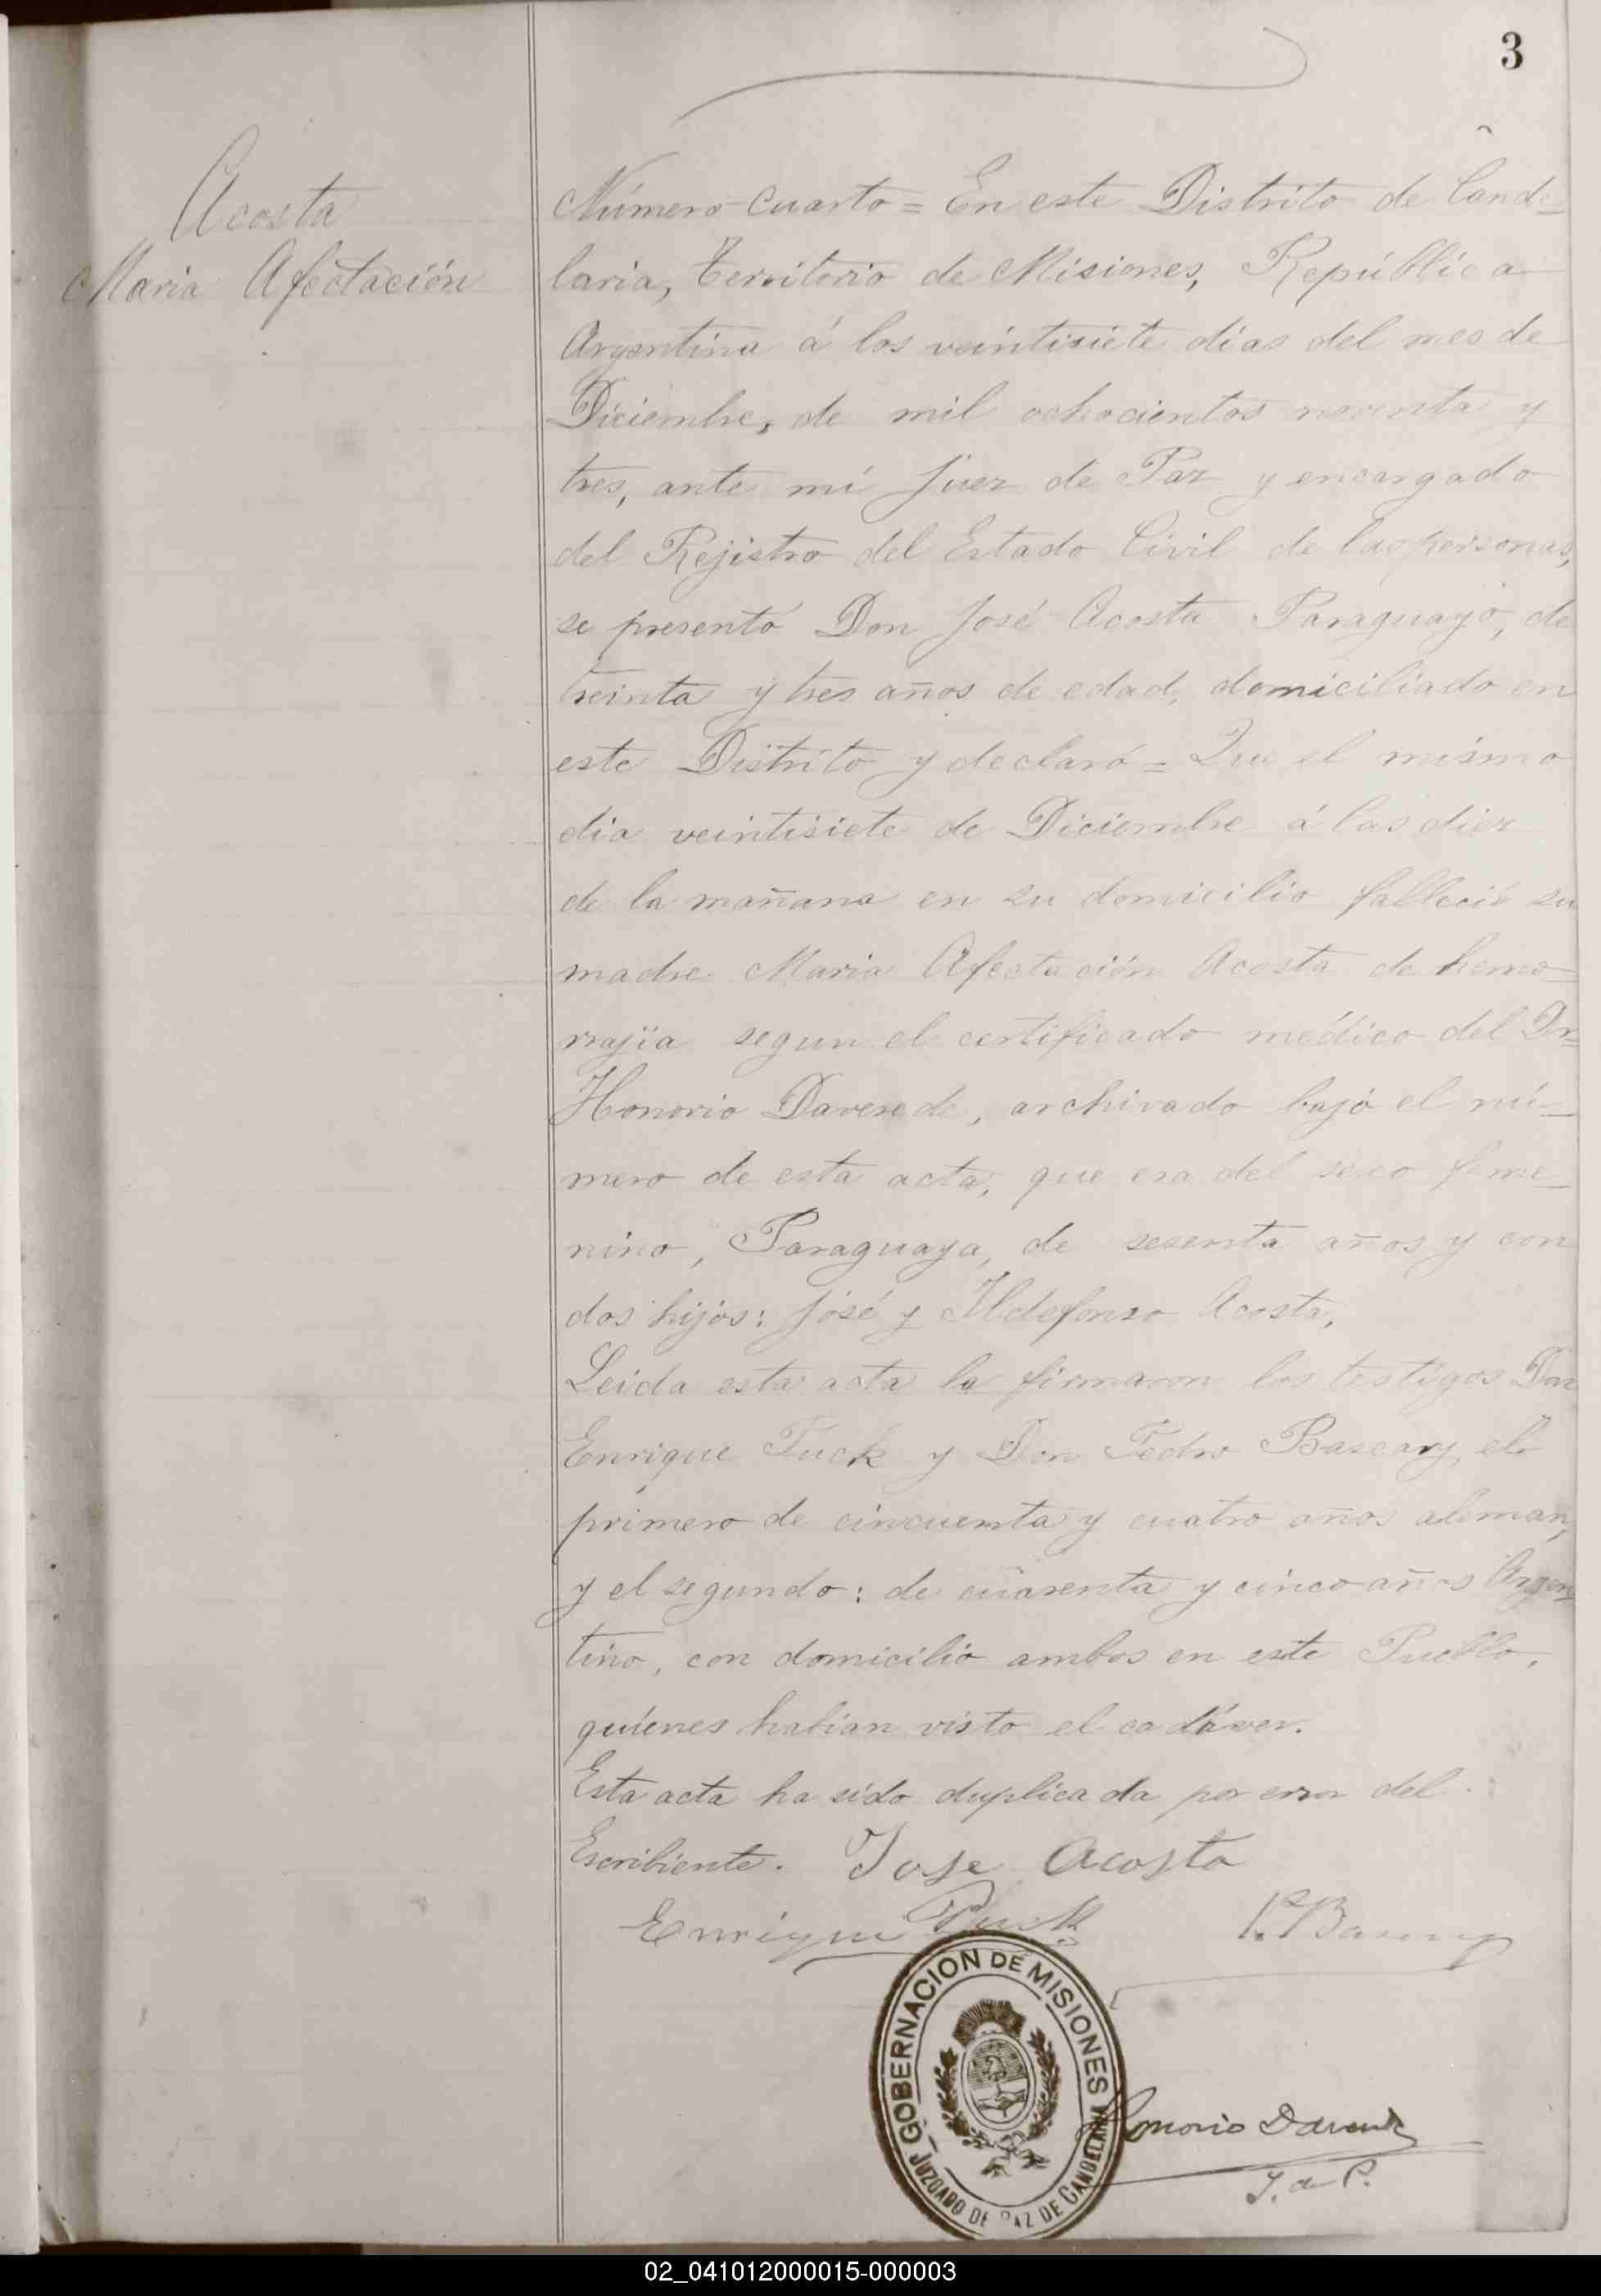 3
Acosta
Maria Afectación
Número cuarto = En este Distrito de Cande=
laria, Territorio de Misiones, República
Argentina á los veintisiete dias del mes de
Diciembre, de mil ochocientos noventa y
tres, ante mi Juez de Paz y encargado
del Rejistro del Estado Civil de las personas,
se presentó Don José Acosta Paraguayo, de
treinta y tres años de edad, domiciliado en
este Distrito y declaró = Que el mismo
dia veintisiete de Diciembre á las diez
de la mañana en su domicilio falleció su
madre Maria Afectación Acosta de hemo=
rrajia segun el certificado médico del Dr=
Honorio Daverede, archivado bajo el nú=
mero de esta acta, que era del sexo feme=
nino, Paraguaya, de sesenta años y con
dos hijos: José y Ildefonso Acosta,
Leida esta acta la firmaron los testigos Don
Enrique Tuck y Don Pedro Bascary, el
primero de cincuenta y cuatro años aleman,
y el segundo: de cuarenta y cinco años Argen=
tino, con domicilio ambos en este Pueblo,
quienes habian visto el cadáver.
Esta acta ha sido duplicada por error del
Escribiente. Jose Acosta
Enrique P. Bascary
GOBERNACION DE MISIONES
JUZGADO DE PAZ DE CANDELARIA
Honorio
J. de P.
02_041012000015-000003